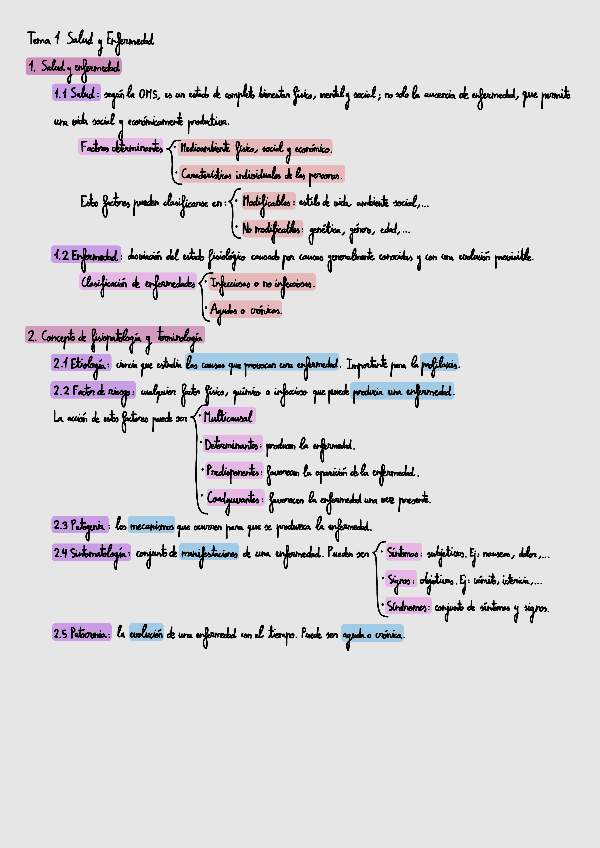 Tema 1 Salud y Enfermedad
1. Salud y enfermedad
1.1 Salud: según la OMS, es un estado de completo bienestar físico, mental y social; no solo la ausencia de enfermedad, que permite
una vida social y económicamente productiva.
Factores determinantes
· Medioambiente físico, social y económico.
· Características individuales de las personas.
Estos factores pueden clasificarse en:
· Modificables: estilo de vida, ambiente social,...
· No modificables: genética, género, edad,...
1.2 Enfermedad: desviación del estado fisiológico causado por causas generalmente conocidas y con una evolución previsible.
Clasificación de enfermedades
· Infecciosas o no infecciosas.
· Agudas o crónicas.
2. Concepto de fisiopatología y terminología
2.1 Etiología: ciencia que estudia las causas que provocan una enfermedad. Importante para la profilaxis.
2.2 Factor de riesgo: cualquier factor físico, químico o infeccioso que puede producir una enfermedad.
La acción de estos factores puede ser
· Multicausal
· Determinantes: producen la enfermedad.
· Predisponentes: favorecen la aparición de la enfermedad.
· Coadyuvantes: favorecen la enfermedad una vez presente.
2.3 Patogenia: los mecanismos que ocurren para que se produzca la enfermedad.
2.4 Sintomatología: conjunto de manifestaciones de una enfermedad. Pueden ser
· Síntomas: subjetivos. Ej: nauseas, dolor,...
· Signos: objetivos. Ej: vómito, ictericia,...
· Síndromes: conjunto de síntomas y signos.
2.5 Patocronia: la evolución de una enfermedad con el tiempo. Puede ser aguda o crónica.